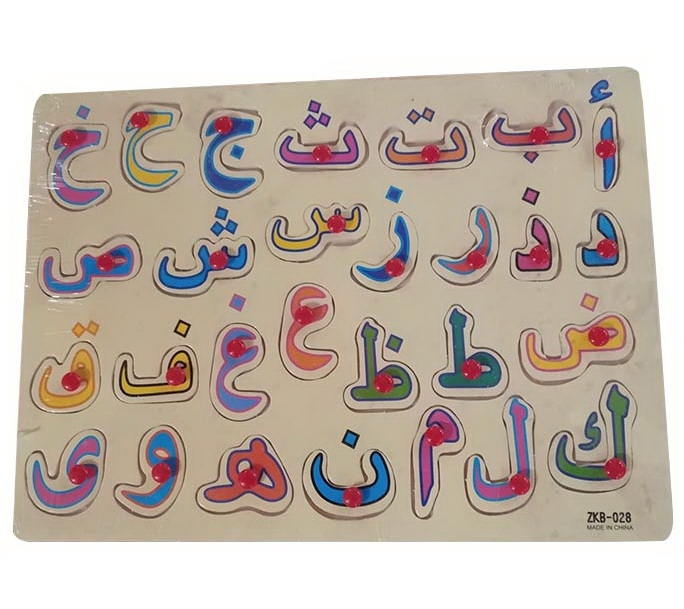 أ ب ت ث ج ح خ
د ذ ر ز س ش ص
ض ط ظ ع غ ف ق
ك ل م ن ه و ى
ZKB-028
MADE IN CHINA